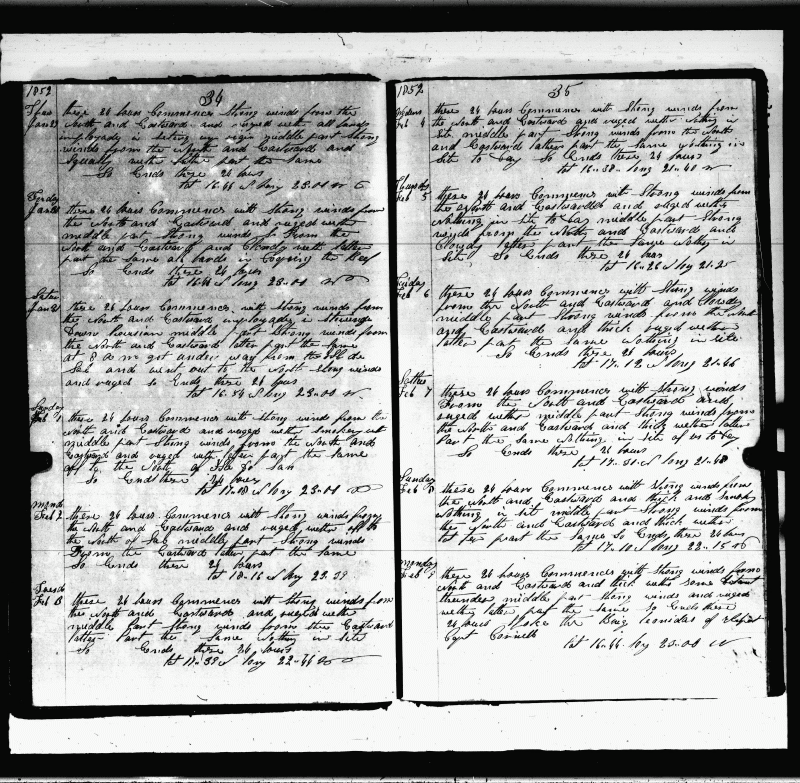 1852
34
Thurs these 24 hours Commence Strong winds from the
Jan 29 North and Eastward and ruged with all hands
imployed in seting up rigin middle part Strong
winds from the North and Eastward and
Squaly with latter part the same
So Ends these 24 hours
Lat 16-44 N long 23-00 W
Friday these 24 hours Commences with Strong winds from
Jan 30 the North and Eastward and ruged wether
middle part Strong winds from the
North and Eastward and Cloudy with latter
part the same all hands in
So Ends these 24 hours
Lat 16-44 N long 23-00 W
Satur these 24 hours Commences with Strong winds from
Jan 31 the North and Eastward imployed in
Down middle part Strong winds from
the North and Eastward latter part the same
at 8 a m got under way from the Isle de
Sal and went out to the North Strong winds
and ruged So Ends these 24 hours
Lat 16-54 N long 23-00 W
Sunday these 24 hours Commences with Strong winds from the
Feb 1 North and Eastward and ruged with smokey wt
middle part Strong winds from the North and
Eastward and ruged with latter part the same
off to the North of Isle
So Ends these 24 hours
Lat 17-08 N long 23-00 W
Mond these 24 hours Commences with Strong winds from
Feb 2 the North and Eastward and ruged wether off to
the North of Sal middle part Strong winds
From the Eastward latter part the same
So Ends these 24 hours
Lat 18-16 N long 23-39
Tuesd these 24 hours Commences with Strong winds from
Feb 3 the North and Eastward and ruged wether
middle Part Strong winds from the Eastward
latter Part the Same Nothing in Site
So Ends these 24 hours
Lat 17-39 N long 22-46 W
1852
35
Wedens these 24 hours Commences with Strong winds from
Feb 4 the North and Eastward and ruged wether Nothing in
Site middle part Strong winds from the North
and Eastward latter part the same nothing in
Site to bay So Ends these 24 hours
Lat 16-38 long 21-40 W
Thursday these 24 hours Commences with Strong winds from
Feb 5 the North and Eastward and ruged wether
Nothing in Site to bay middle part Strong
winds from the North and Eastward and
Cloudy latter part the same Nothing in
Site So Ends these 24 hours
Lat 16-26 N long 21-2
Friday these 24 hours Commences with Strong winds
Feb 6 from the North and Eastward and Cloudy
middle part Strong winds from the North
and Eastward and thick ruged wether
latter part the same Nothing in site
So Ends these 24 hours
Lat 17-12 N long 21-46
Satter these 24 hours Commences with Strong winds
Feb 7 From the North and Eastward and
ruged wether middle part Strong winds from
the North and Eastward and thick wether latter
Part the same Nothing in site of us to bay
So Ends these 24 hours
Lat 17-31 N long 21-48
Sunday these 24 hours Commences with Strong winds from
Feb 8 the North and Eastward and thick and
Nothing in site middle part Strong winds from
the North and Eastward and thick wether
latter part the same So Ends these 24 hours
Lat 17-10 N long 22-15 W
Monday these 24 hours Commences with Strong winds from
Feb 9 North and Eastward and thick with some
thunder middle part Strong winds and ruged
wether latter part the same So Ends these
24 hours Spoke the Brig leonides of
Capt Cornell
Lat 16-44 long 23-00 W